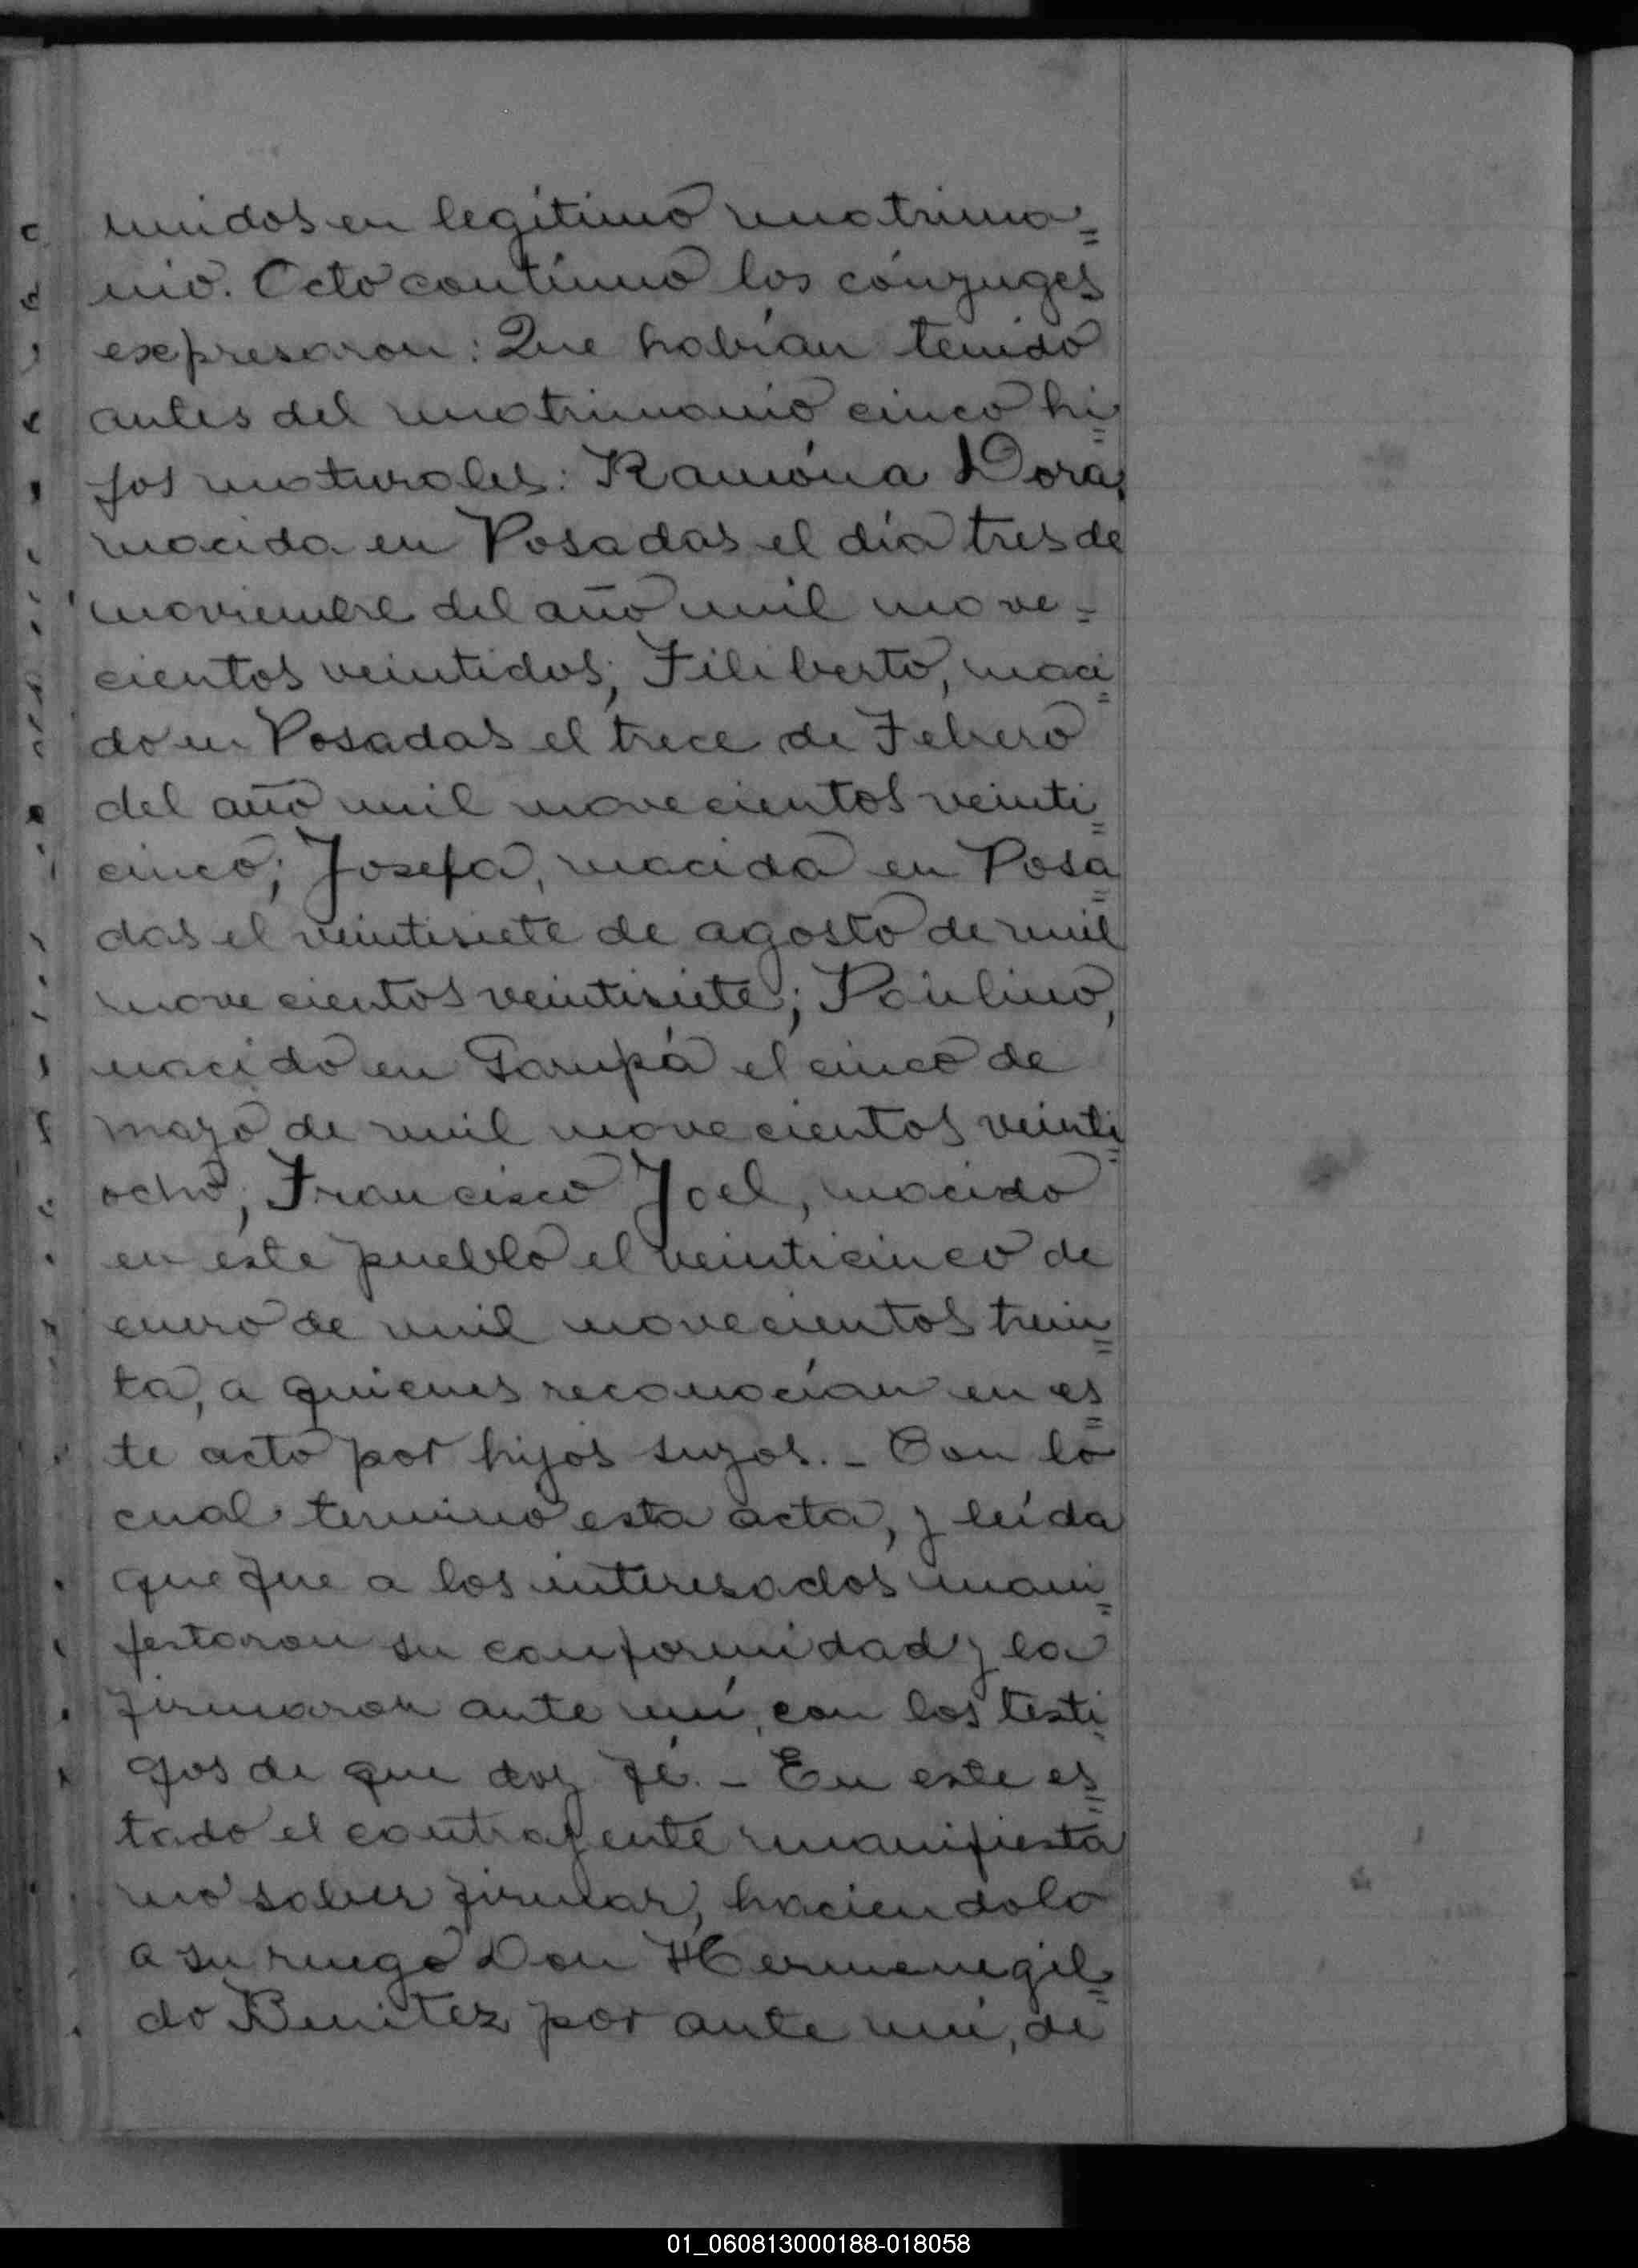 unidos en legítimo matrimo=
nio. Acto contínuo los cónyuges
expresaron: Que habían tenido
antes del matrimonio cinco hi=
jos naturales: Ramóna Dora,
nacida en Posadas el día tres de
noviembre del año mil nove=
cientos veintidos; Filiberto, naci=
do en Posadas el trece de Febrero
del año mil novecientos veinti=
cinco; Josefa, nacida en Posa=
das el veintisiete de agosto de mil
novecientos veintisiete; Paulino,
nacido en Garupá el cinco de
mayo de mil novecientos veinti=
ocho; Francisco Joel, nacido
en éste pueblo el veinticinco de
enero de mil novecientos trein=
ta, a quienes reconocían en es=
te acto por hijos suyos.- Con lo
cual termino esta acta, y leída
que fue a los interesados mani=
festaron su conformidad y la
firmaron ante mí, con los testi=
gos de que doy fé.- En este es=
tado el contrayente manifiesta
no saber firmar, haciendolo
a su ruego Don Hermenegil=
do Benitez por ante mi, de
01_060813000188-018058